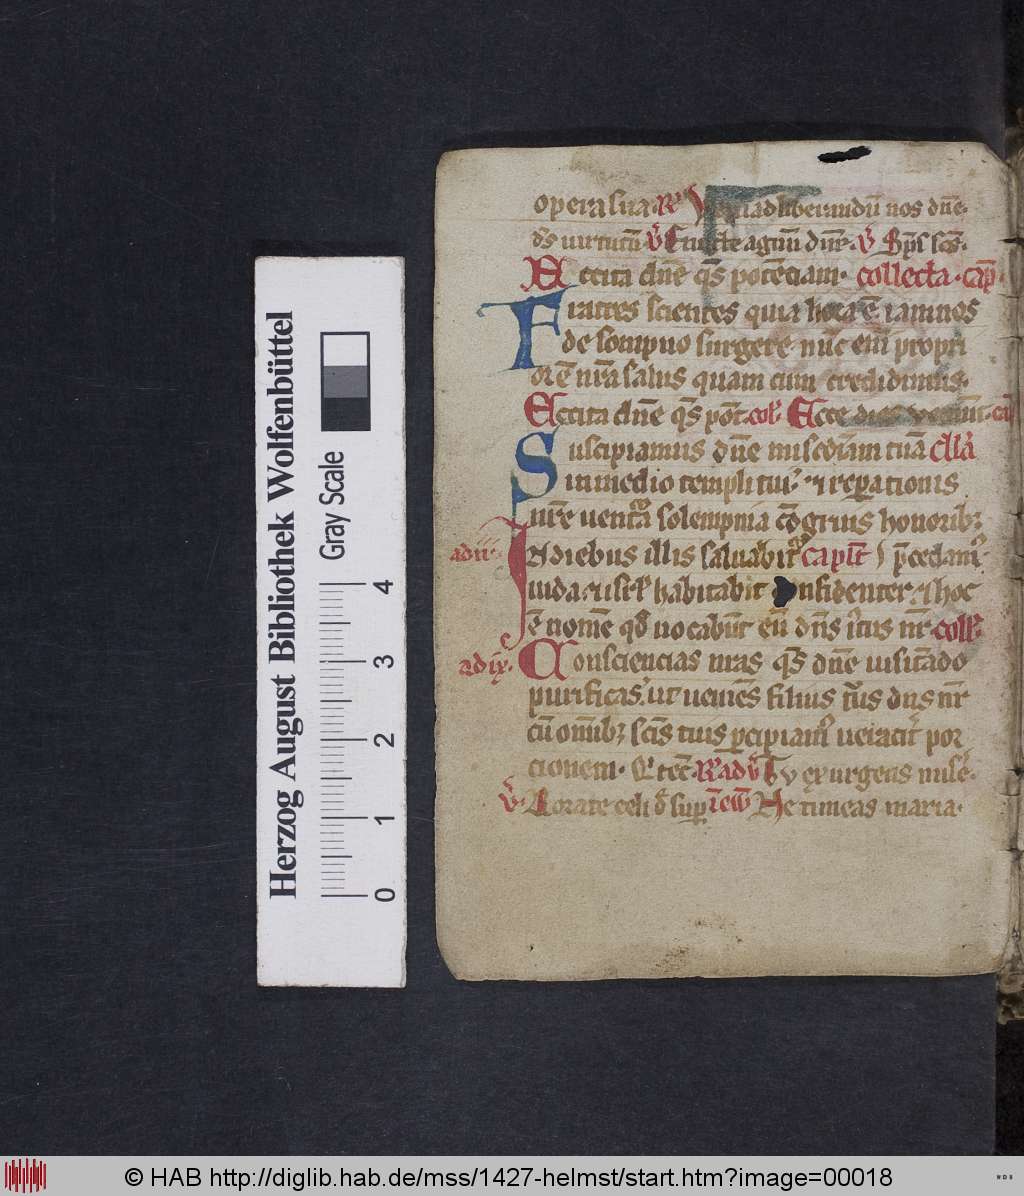 opera sua. R̸ Veni ad liberandū nos dn̄e.
ds̄ uirtutū v̄ Emitte agnū dn̄e. v̄ Sps̄ scs̄.
Excita dn̄e qs̄ potēciam. collecta. cap̄.
Fratres scientes quia hora ē iam nos
de sompno surgere nūc eni propri
or ē nr̄a salus quam cum credidimus.
Excita dn̄e qs̄ pōt. col'. Ecce dies ueniūt. cap̄
Suscipiamus dn̄e misc̄diam tuā cll̄a
in medio templi tui. ut reparationis
nr̄e uentura solempnia cōgruis honorib;
ad iii. In diebus illis saluabit capit̄l p̄cedam'.
iuda. et isrl' habitabit confidenter. et hoc
ē nomē qd̄ uocabūt eū dn̄s iustus nr̄. coll'.
ad ix. Consciencias nr̄as qs̄ dn̄e uisitādo
purifica. ut ueniēs filius tuus dn̄s nr̄
cū omīb; scīs tuis
cionem. Tu exurgens
v̄. Rorate celi d' sup Ne timeas maria.
Herzog August Bibliothek Wolfenbüttel
Gray Scale
0 1 2 3 4
© HAB http://diglib.hab.de/mss/1427-helmst/start.htm?image=00018